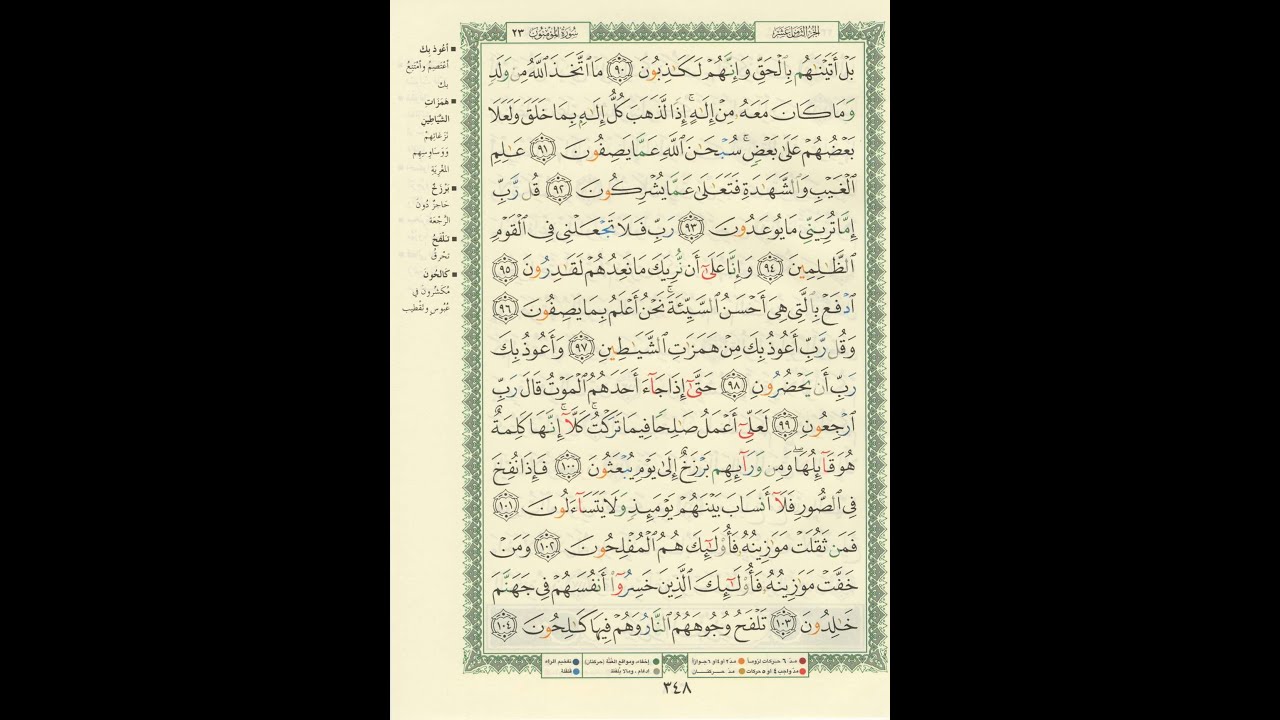 سُورَةُ المُؤْمِنُون ٢٣
الجزء الثامن عشر
بَلْ أَتَيْنَٰهُم بِٱلْحَقِّ وَإِنَّهُمْ لَكَٰذِبُونَ ٩٠ مَا ٱتَّخَذَ ٱللَّهُ مِن وَلَدٍ
وَمَا كَانَ مَعَهُۥ مِنْ إِلَٰهٍ ۚ إِذًا لَّذَهَبَ كُلُّ إِلَٰهٍۭ بِمَا خَلَقَ وَلَعَلَا
بَعْضُهُمْ عَلَىٰ بَعْضٍ ۚ سُبْحَٰنَ ٱللَّهِ عَمَّا يَصِفُونَ ٩١ عَٰلِمِ
ٱلْغَيْبِ وَٱلشَّهَٰدَةِ فَتَعَٰلَىٰ عَمَّا يُشْرِكُونَ ٩٢ قُل رَّبِّ
إِمَّا تُرِيَنِّي مَا يُوعَدُونَ ٩٣ رَبِّ فَلَا تَجْعَلْنِي فِي ٱلْقَوْمِ
ٱلظَّٰلِمِينَ ٩٤ وَإِنَّا عَلَىٰٓ أَن نُّرِيَكَ مَا نَعِدُهُمْ لَقَٰدِرُونَ ٩٥
ٱدْفَعْ بِٱلَّتِي هِيَ أَحْسَنُ ٱلسَّيِّئَةَ ۚ نَحْنُ أَعْلَمُ بِمَا يَصِفُونَ ٩٦
وَقُل رَّبِّ أَعُوذُ بِكَ مِنْ هَمَزَٰتِ ٱلشَّيَٰطِينِ ٩٧ وَأَعُوذُ بِكَ
رَبِّ أَن يَحْضُرُونِ ٩٨ حَتَّىٰٓ إِذَا جَآءَ أَحَدَهُمُ ٱلْمَوْتُ قَالَ رَبِّ
ٱرْجِعُونِ ٩٩ لَعَلِّيٓ أَعْمَلُ صَٰلِحًا فِيمَا تَرَكْتُ ۚ كَلَّآ ۚ إِنَّهَا كَلِمَةٌ
هُوَ قَآئِلُهَا ۖ وَمِن وَرَآئِهِم بَرْزَخٌ إِلَىٰ يَوْمِ يُبْعَثُونَ ١٠٠ فَإِذَا نُفِخَ
فِي ٱلصُّورِ فَلَآ أَنسَابَ بَيْنَهُمْ يَوْمَئِذٍ وَلَا يَتَسَآءَلُونَ ١٠١
فَمَن ثَقُلَتْ مَوَٰزِينُهُۥ فَأُو۟لَٰٓئِكَ هُمُ ٱلْمُفْلِحُونَ ١٠٢ وَمَنْ
خَفَّتْ مَوَٰزِينُهُۥ فَأُو۟لَٰٓئِكَ ٱلَّذِينَ خَسِرُوٓا۟ أَنفُسَهُمْ فِي جَهَنَّمَ
خَٰلِدُونَ ١٠٣ تَلْفَحُ وُجُوهَهُمُ ٱلنَّارُ وَهُمْ فِيهَا كَٰلِحُونَ ١٠٤
■ أعُوذ بِك
أعْتَصِمُ وأمْتَنِعُ
بك
■ هَمَزاتِ
الشّيَاطِينِ
نَزَغاتِهِمْ
وَوَسَاوِسِهِم
المُغْرِيَةِ
■ بَرْزَخٌ
حَاجِزٌ دُونَ
الرَّجْعَة
■ تَلْفَحُ
تَحْرِقُ
■ كَالِحُونَ
مُكَشِّرُونَ في
عُبُوسٍ وتَقْطِيب
مدّ ٦ حركات لزوماً مدّ٢ أو٤ أو ٦ جوازاً
مدّ واجب ٤ أو ٥ حركات مدّ حـركتــان
إخفاء، ومواقع الغُنَّة (حركتان) تفخيم الراء
ادغام ، وما لا يُلفَظ قلقلة
٣٤٨